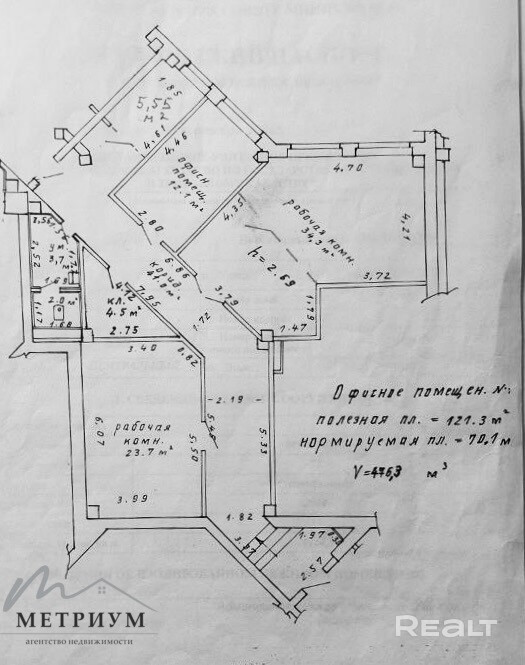 1.85
5,55
м²
4.61
4.46
офисн
помещ.
12.1 м²
4.70
4.35
рабочая комн.
34.3 м²
4.21
h=2.69
3.72
2.80
6.86
корид.
41.8 м²
7.95
1.79
3.79
1.72
1.47
2.52
ум.
3,7 м²
1.69
2.0 м²
1.17
1.68
4.12
кл.
4.5 м²
2.75
3.40
0.82
2.19
5.48
6.07
рабочая
комн.
23.7 м²
5.50
5.33
3.99
1.82
3.97
1.97
2.57
Офисное помещен. №:
полезная пл. = 121.3 м²
нормируемая пл. = 70.1 м
V=476,3 м³
МЕТРИУМ
агентство недвижимости
REALT